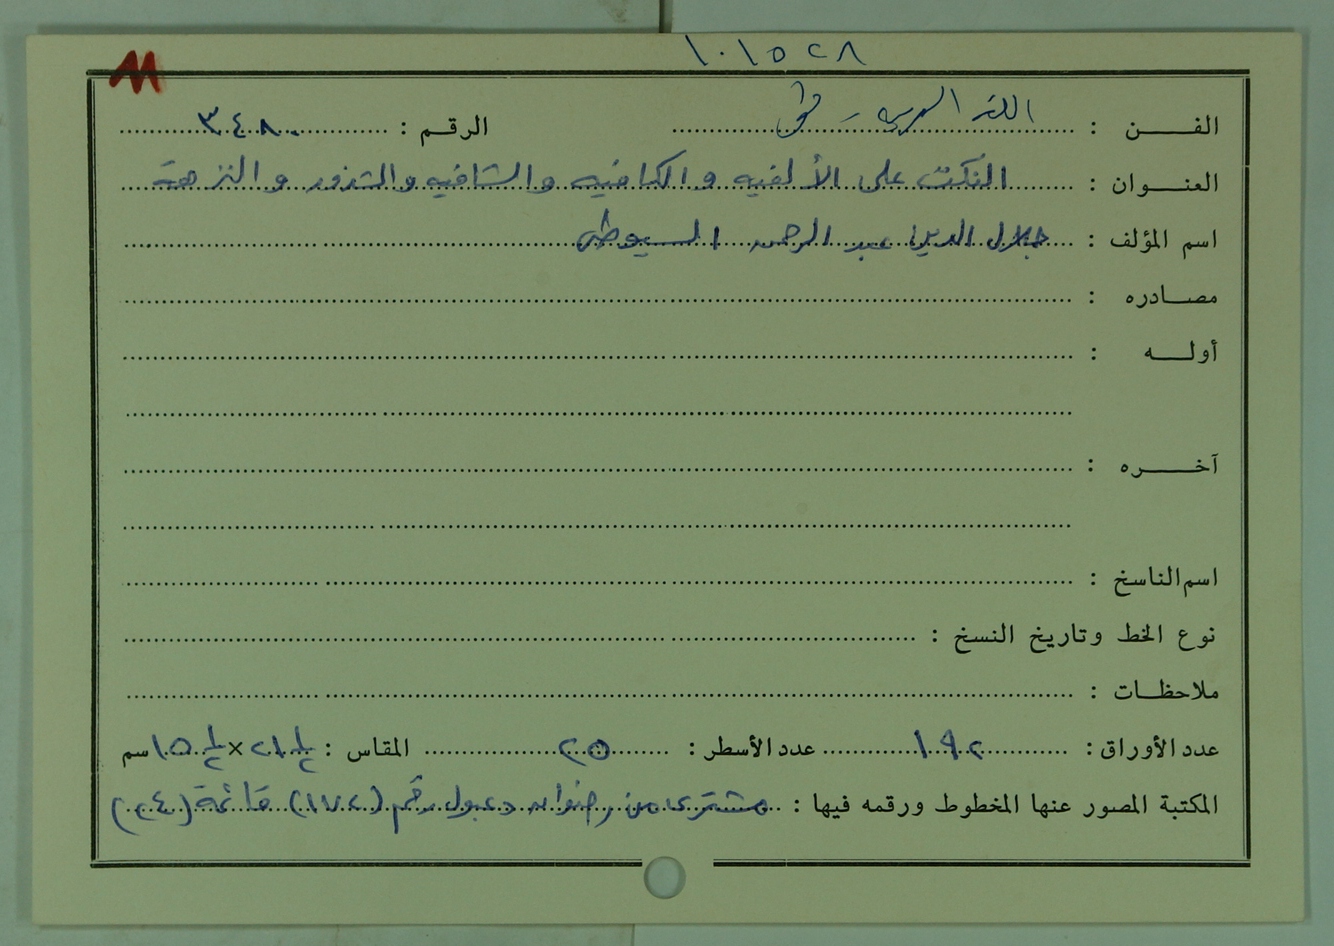 ١٠١٥٢٨
الفن : اللغة العربية - الرقم : ٣٤٨٠
العنوان : النكت على الألفيه والكافيه والشافيه والشذور والنزهة
اسم المؤلف : جلال الدين عبد الرحمن السيوطي
مصادره :
أوله :
آخره :
اسم الناسخ :
نوع الخط وتاريخ النسخ :
ملاحظات :
عدد الأوراق : ١٩٢ عدد الأسطر : ٢٥ المقاس : ٢١ ١/٢ × ١٥ ١/٢ سم
المكتبة المصور عنها المخطوط ورقمه فيها : مشترى من رضوان دعبول رقم (١٧٢) قائمة (٢٤٠)